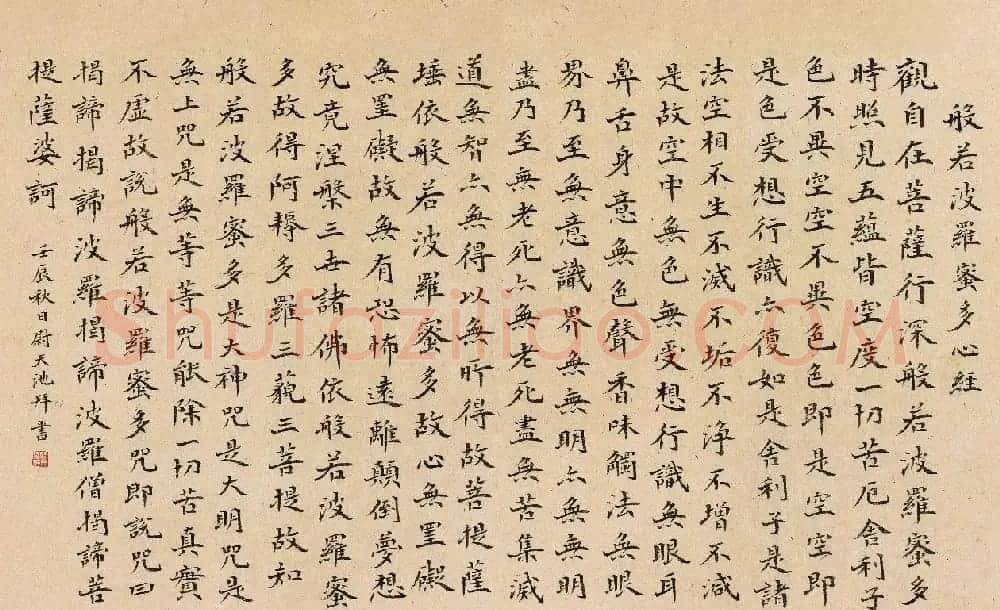 般若波羅蜜多心経
觀自在菩薩行深般若波羅蜜多
時照見五蘊皆空度一切苦厄舍利子
色不異空空不異色色即是空空即
是色受想行識亦復如是舍利子是諸
法空相不生不滅不垢不淨不增不減
是故空中無色無受想行識無眼耳
鼻舌身意無色聲香味觸法無眼
界乃至無意識界無無明亦無無明
盡乃至無老死亦無老死盡無苦集滅
道無智亦無得以無所得故菩提薩
埵依般若波羅蜜多故心無罣礙
無罣礙故無有恐怖遠離顛倒夢想
究竟涅槃三世諸佛依般若波羅蜜
多故得阿耨多羅三藐三菩提故知
般若波羅蜜多是大神咒是大明咒是
無上咒是無等等咒能除一切苦真實
不虛故說般若波羅蜜多咒即說咒曰
揭諦揭諦波羅揭諦波羅僧揭諦菩
提薩婆訶
壬辰秋日尉天池拜書
Shufaziliao.COM